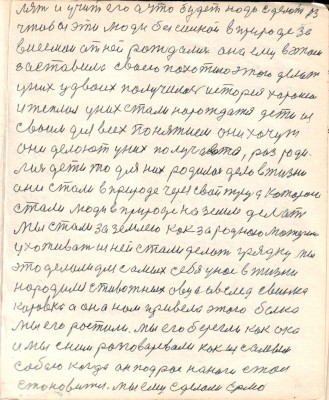 лят и учит его а что будет надо сделат раз
что бы эти люди без ихной в природе за
вместо от ней рождалися она ему в этом
заставила своего похотию этого делат
у них удвоих получился история хорошо
и тепло у них стали нарождатя дети и
своим для всех понятием они хочут
они делают у них получаетя, раз роди-
лися дети то для них родилося дело в жизни
они стали в природе через свой труд которого
стали люди в природе на земли делат
мы стали за землею как за родною матерью
ухоживат и ней стали делат грядку мы
это делали для самых себя у нас в жизни
народились животных овца вслед свинка
коровка а она нам привела этого бычка
мы его ростили. мы его берегли как ока
и мы с ним разговаревали как и с самым
собою когда он подрос на ноги стал
становитя. мы ему сделали ермо